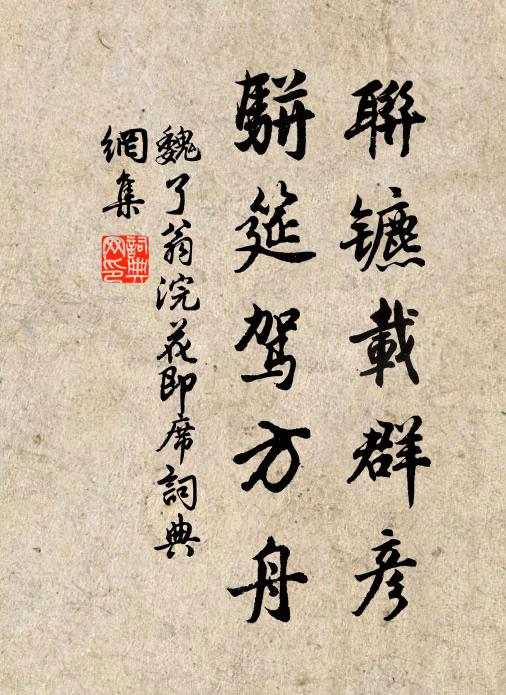 聯镳載群彦
駢筵駕方舟
魏了翁浣花即席詞典
網集
詞典
网印